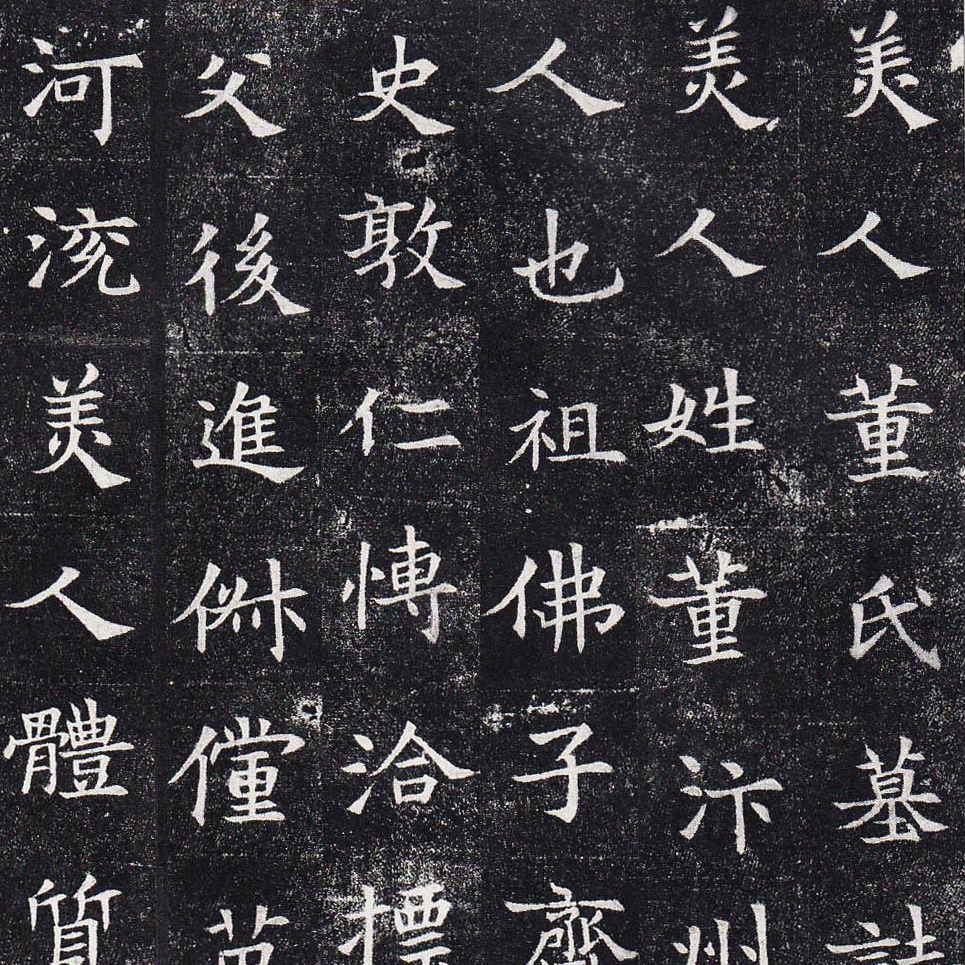 美人董氏墓誌
美人姓董汴州
人也祖佛子齊
史敦仁博洽標
父後進俶儻英
河浣美人體質